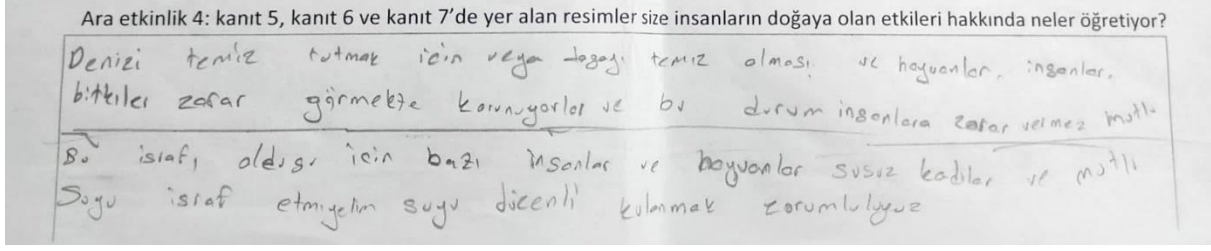 Ara etkinlik 4: kanıt 5, kanıt 6 ve kanıt 7’de yer alan resimler size insanların doğaya olan etkileri hakkında neler öğretiyor?
Denizi temiz tutmak için veya dogayı temiz olması ve hayvanlar, insanlar,
bitkiler zarar görmekte korunuyorlar ve bu durum insanlara zarar vermez mutlu
israfı oldugu için bazı insanlar ve hayvanlar susuz kadılar ve mutlı
Suyu israf etmiyelim suyu düzenli kulanmak zorumluluyuz